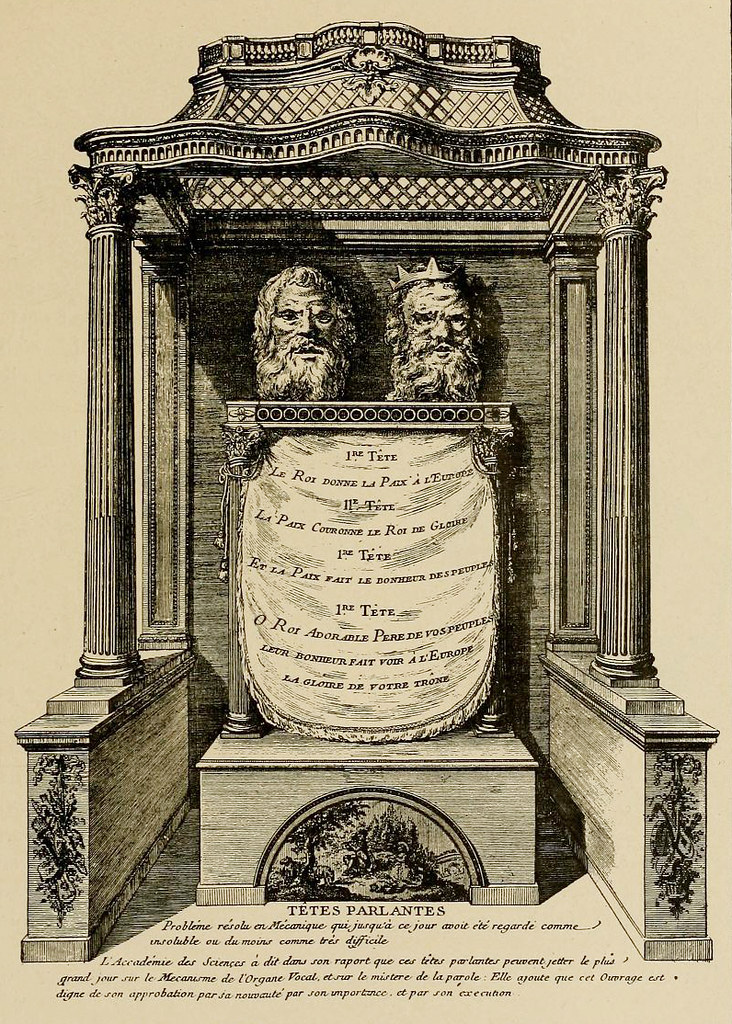 1RE TÊTE
LE ROI DONNE LA PAIX À L'EUROPE
IIE TÊTE
LA PAIX COURONNE LE ROI DE GLOIRE
1RE TÊTE
ET LA PAIX FAIT LE BONHEUR DES PEUPLES
1RE TÊTE
O ROI ADORABLE PERE DE VOS PEUPLES
LEUR BONHEUR FAIT VOIR A L'EUROPE
LA GLOIRE DE VOTRE TRONE
TÊTES PARLANTES
Probléme résolu en Mécanique qui jusqu'à ce jour avoit été regardé comme
insoluble ou du moins comme trés difficile
L'Accadémie des Sciences à dit dans son raport que ces têtes parlantes peuvent jetter le plus
grand jour sur le Mecanisme de l'Organe Vocal, et sur le mistere de la parole: Elle ajoute que cet Ouvrage est
digne de son approbation par sa nouvauté par son importance, et par son execution